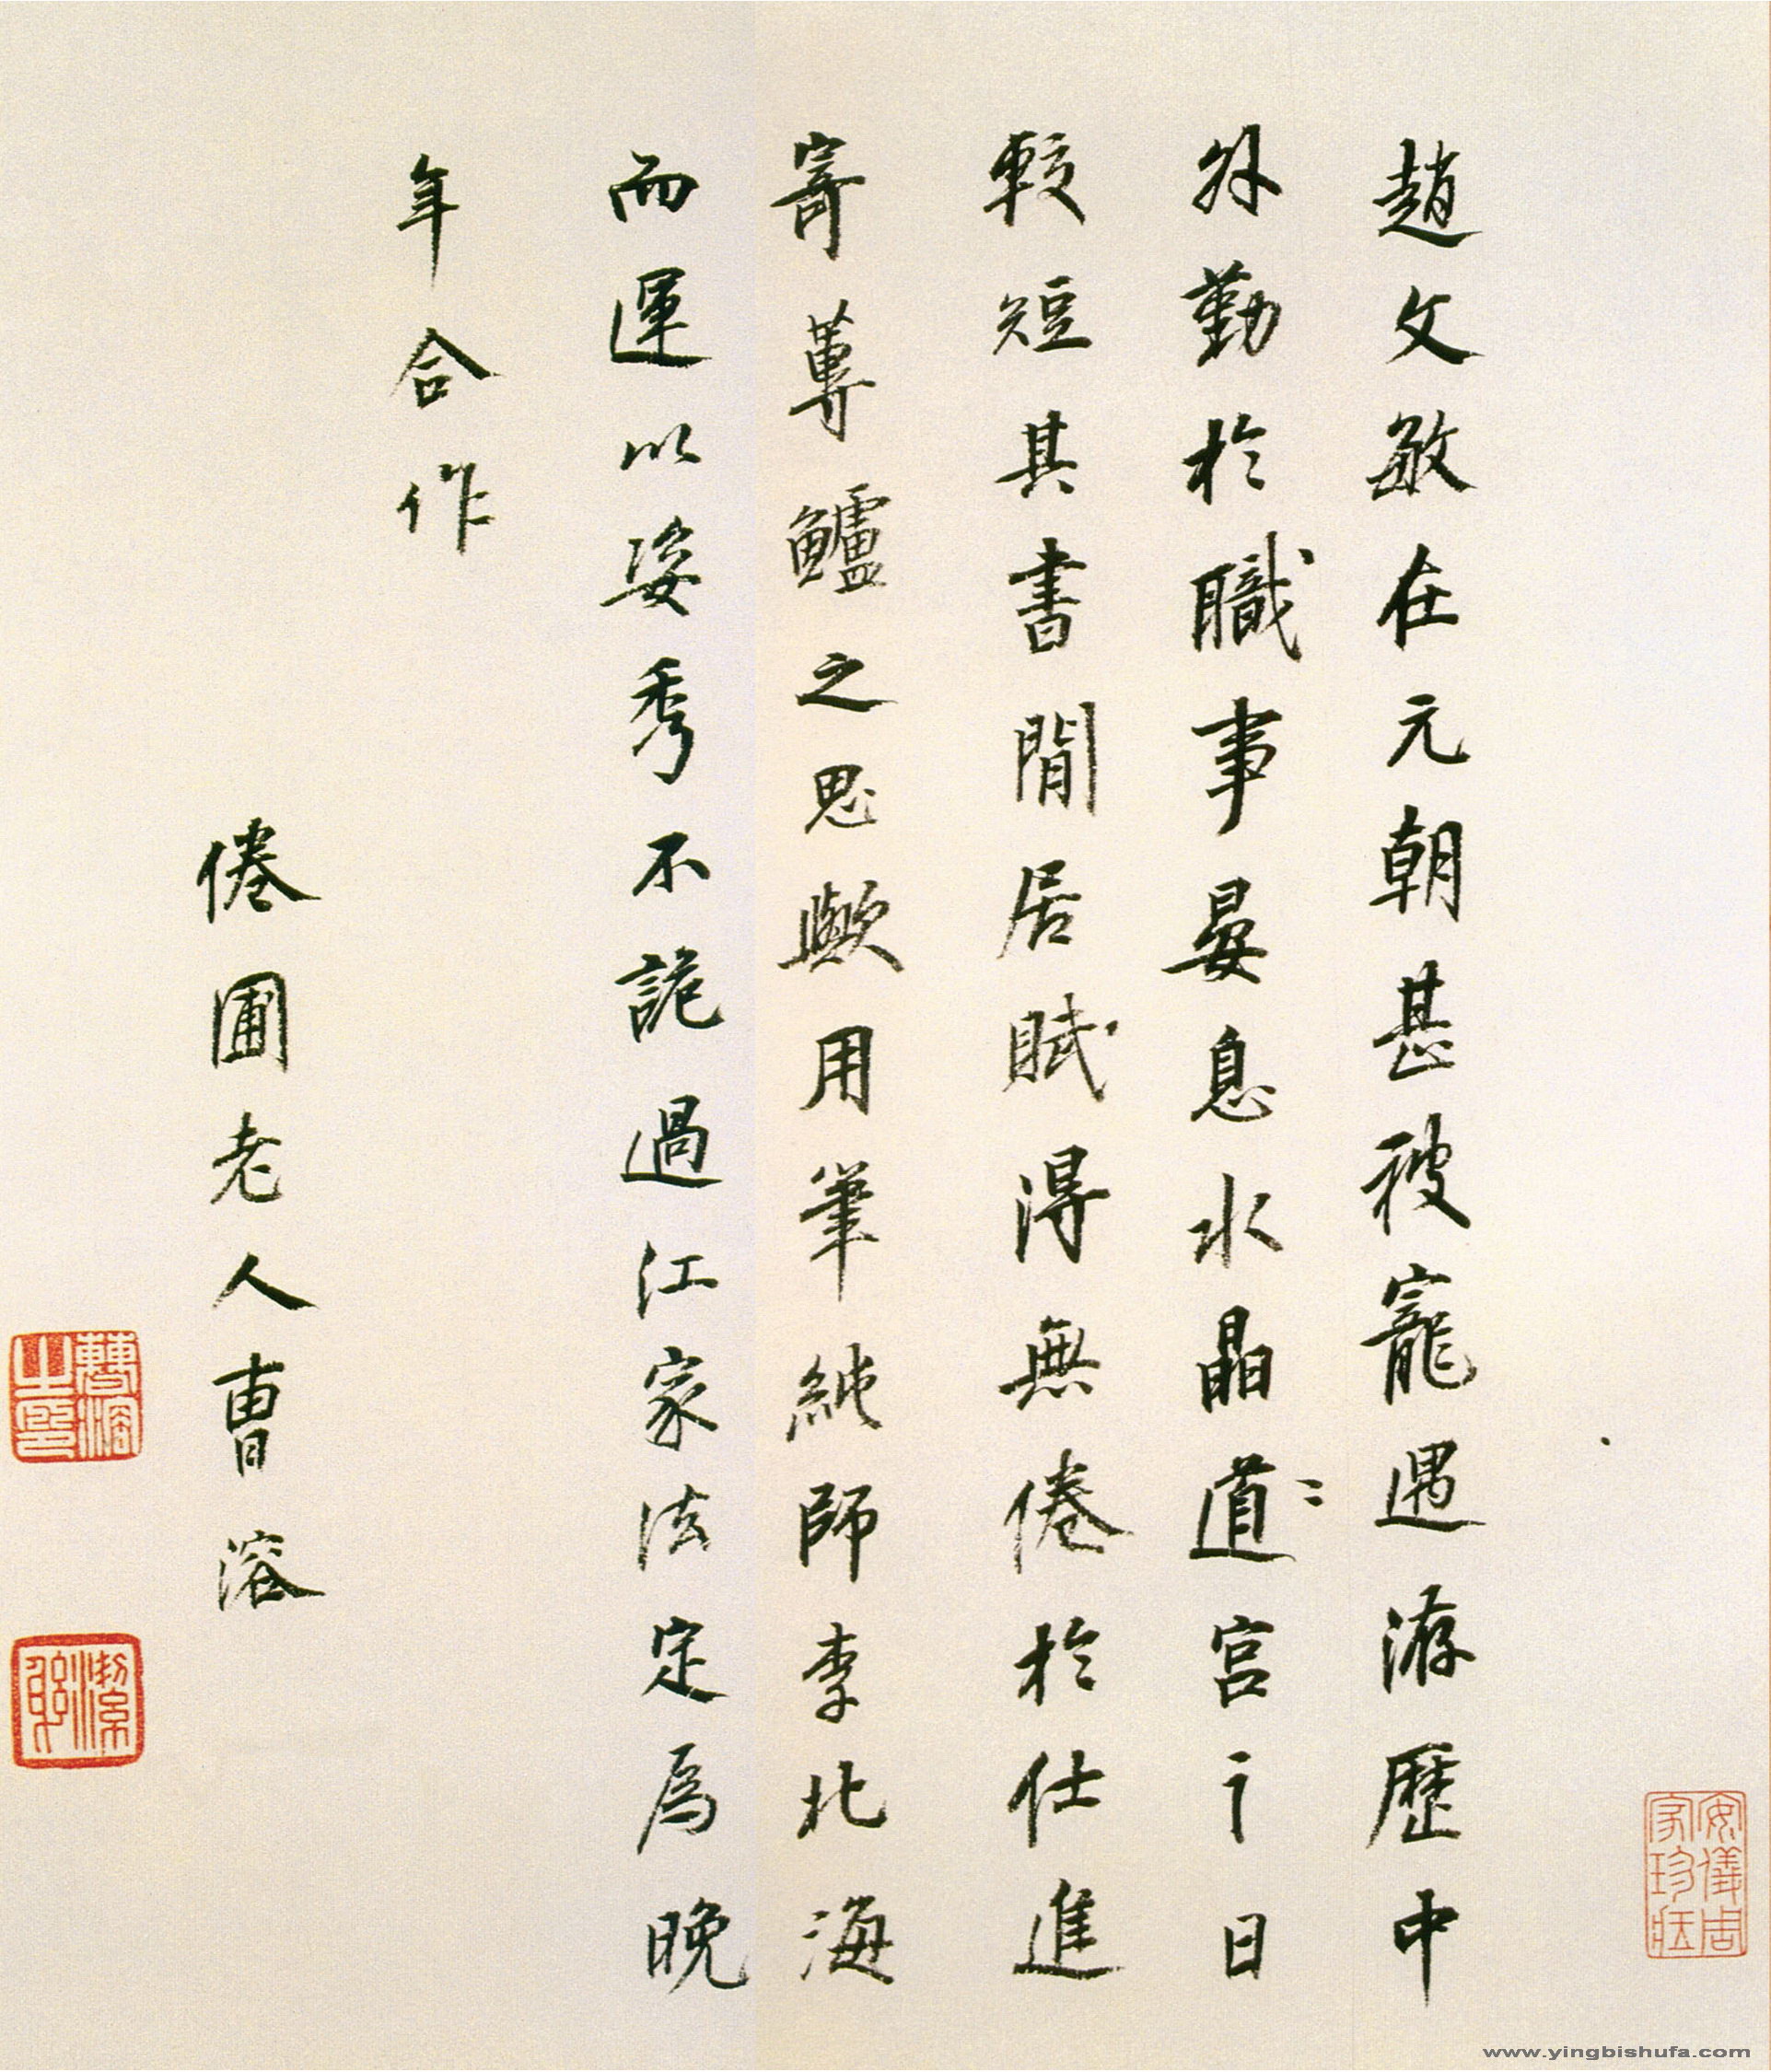 趙文敏在元朝甚被寵遇游歷中
外勤於職事晏息水晶道宮之日
較短其書閒居賦得無倦於仕進
寄蓴鱸之思歟用筆純師李北海
而運以姿秀不詭過江家法定為晚
年合作
倦圃老人曹溶
曹溶之印
潔躬
安儀周家珍藏
www.yingbishufa.com